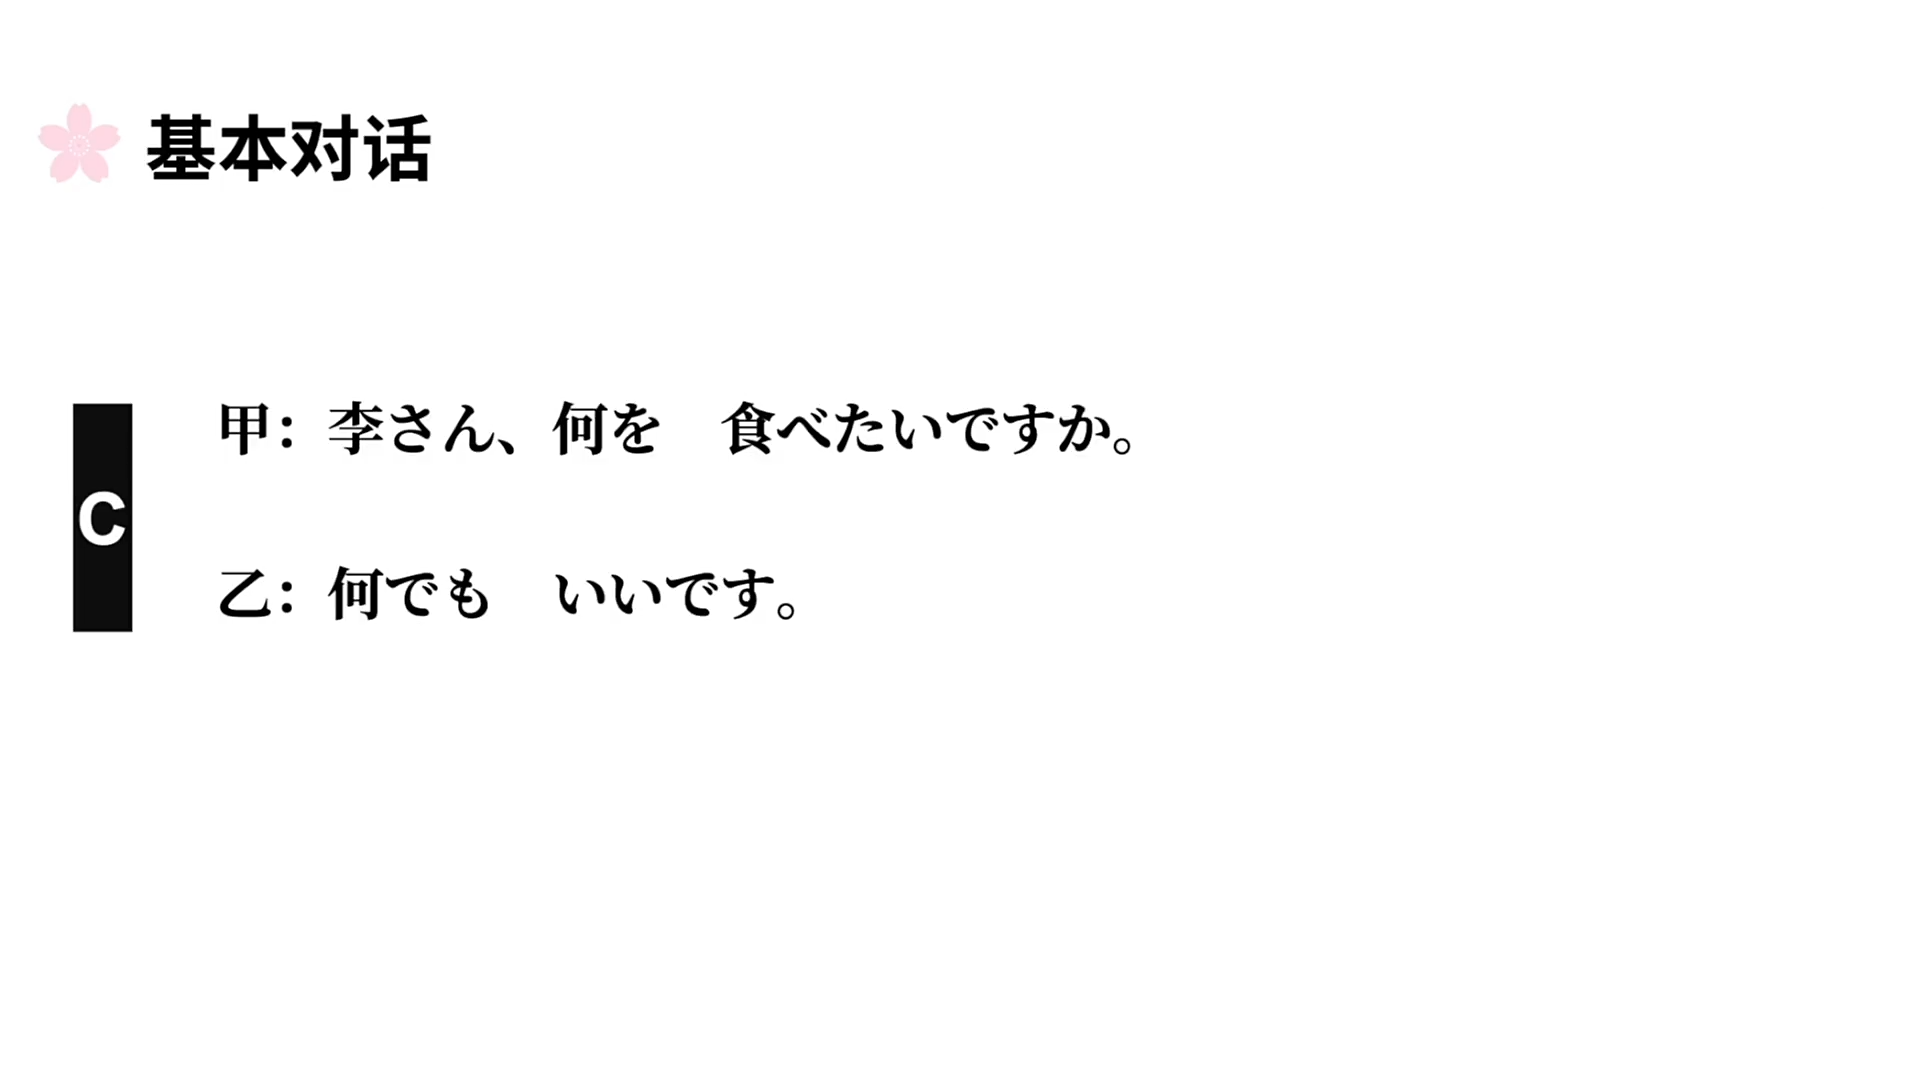 基本对话
甲：李さん、何を　食べたいですか。
C
乙：何でも　いいです。